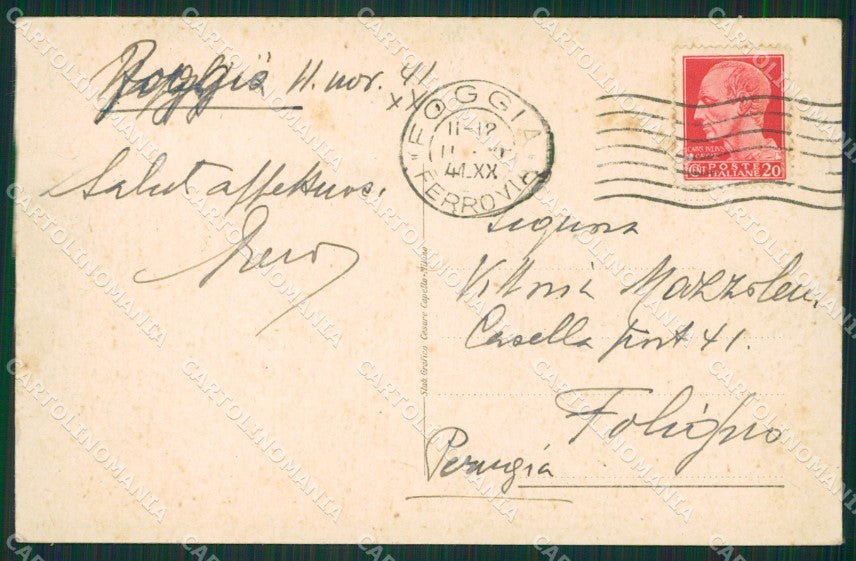 Foggia 11. nov. 41
XX.
Saluti affettuosi.
FOGGIA
11-12
11
41.XX
FERROVIA
CAIVS IVLIVS
POSTE
ITALIANE
CENT
20
Signora
Vittoria Mazzoleni
Casella Post 41.
Foligno
Perugia
Stab Grafico Cesare Capello-Milano
CARTOLINOMANIA